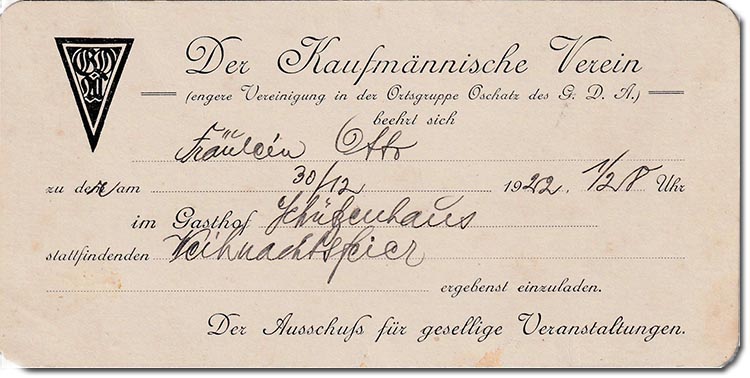 GDA
Der Kaufmännische Verein
(engere Vereinigung in der Ortsgruppe Oschatz des G. D. A.)
beehrt sich
Fräulein Otto
zu der am 30/12 1922. 1/2 8 Uhr
im Gasthof Schützenhaus
stattfindenden Weihnachtsfeier
ergebenst einzuladen.
Der Ausschuß für gesellige Veranstaltungen.